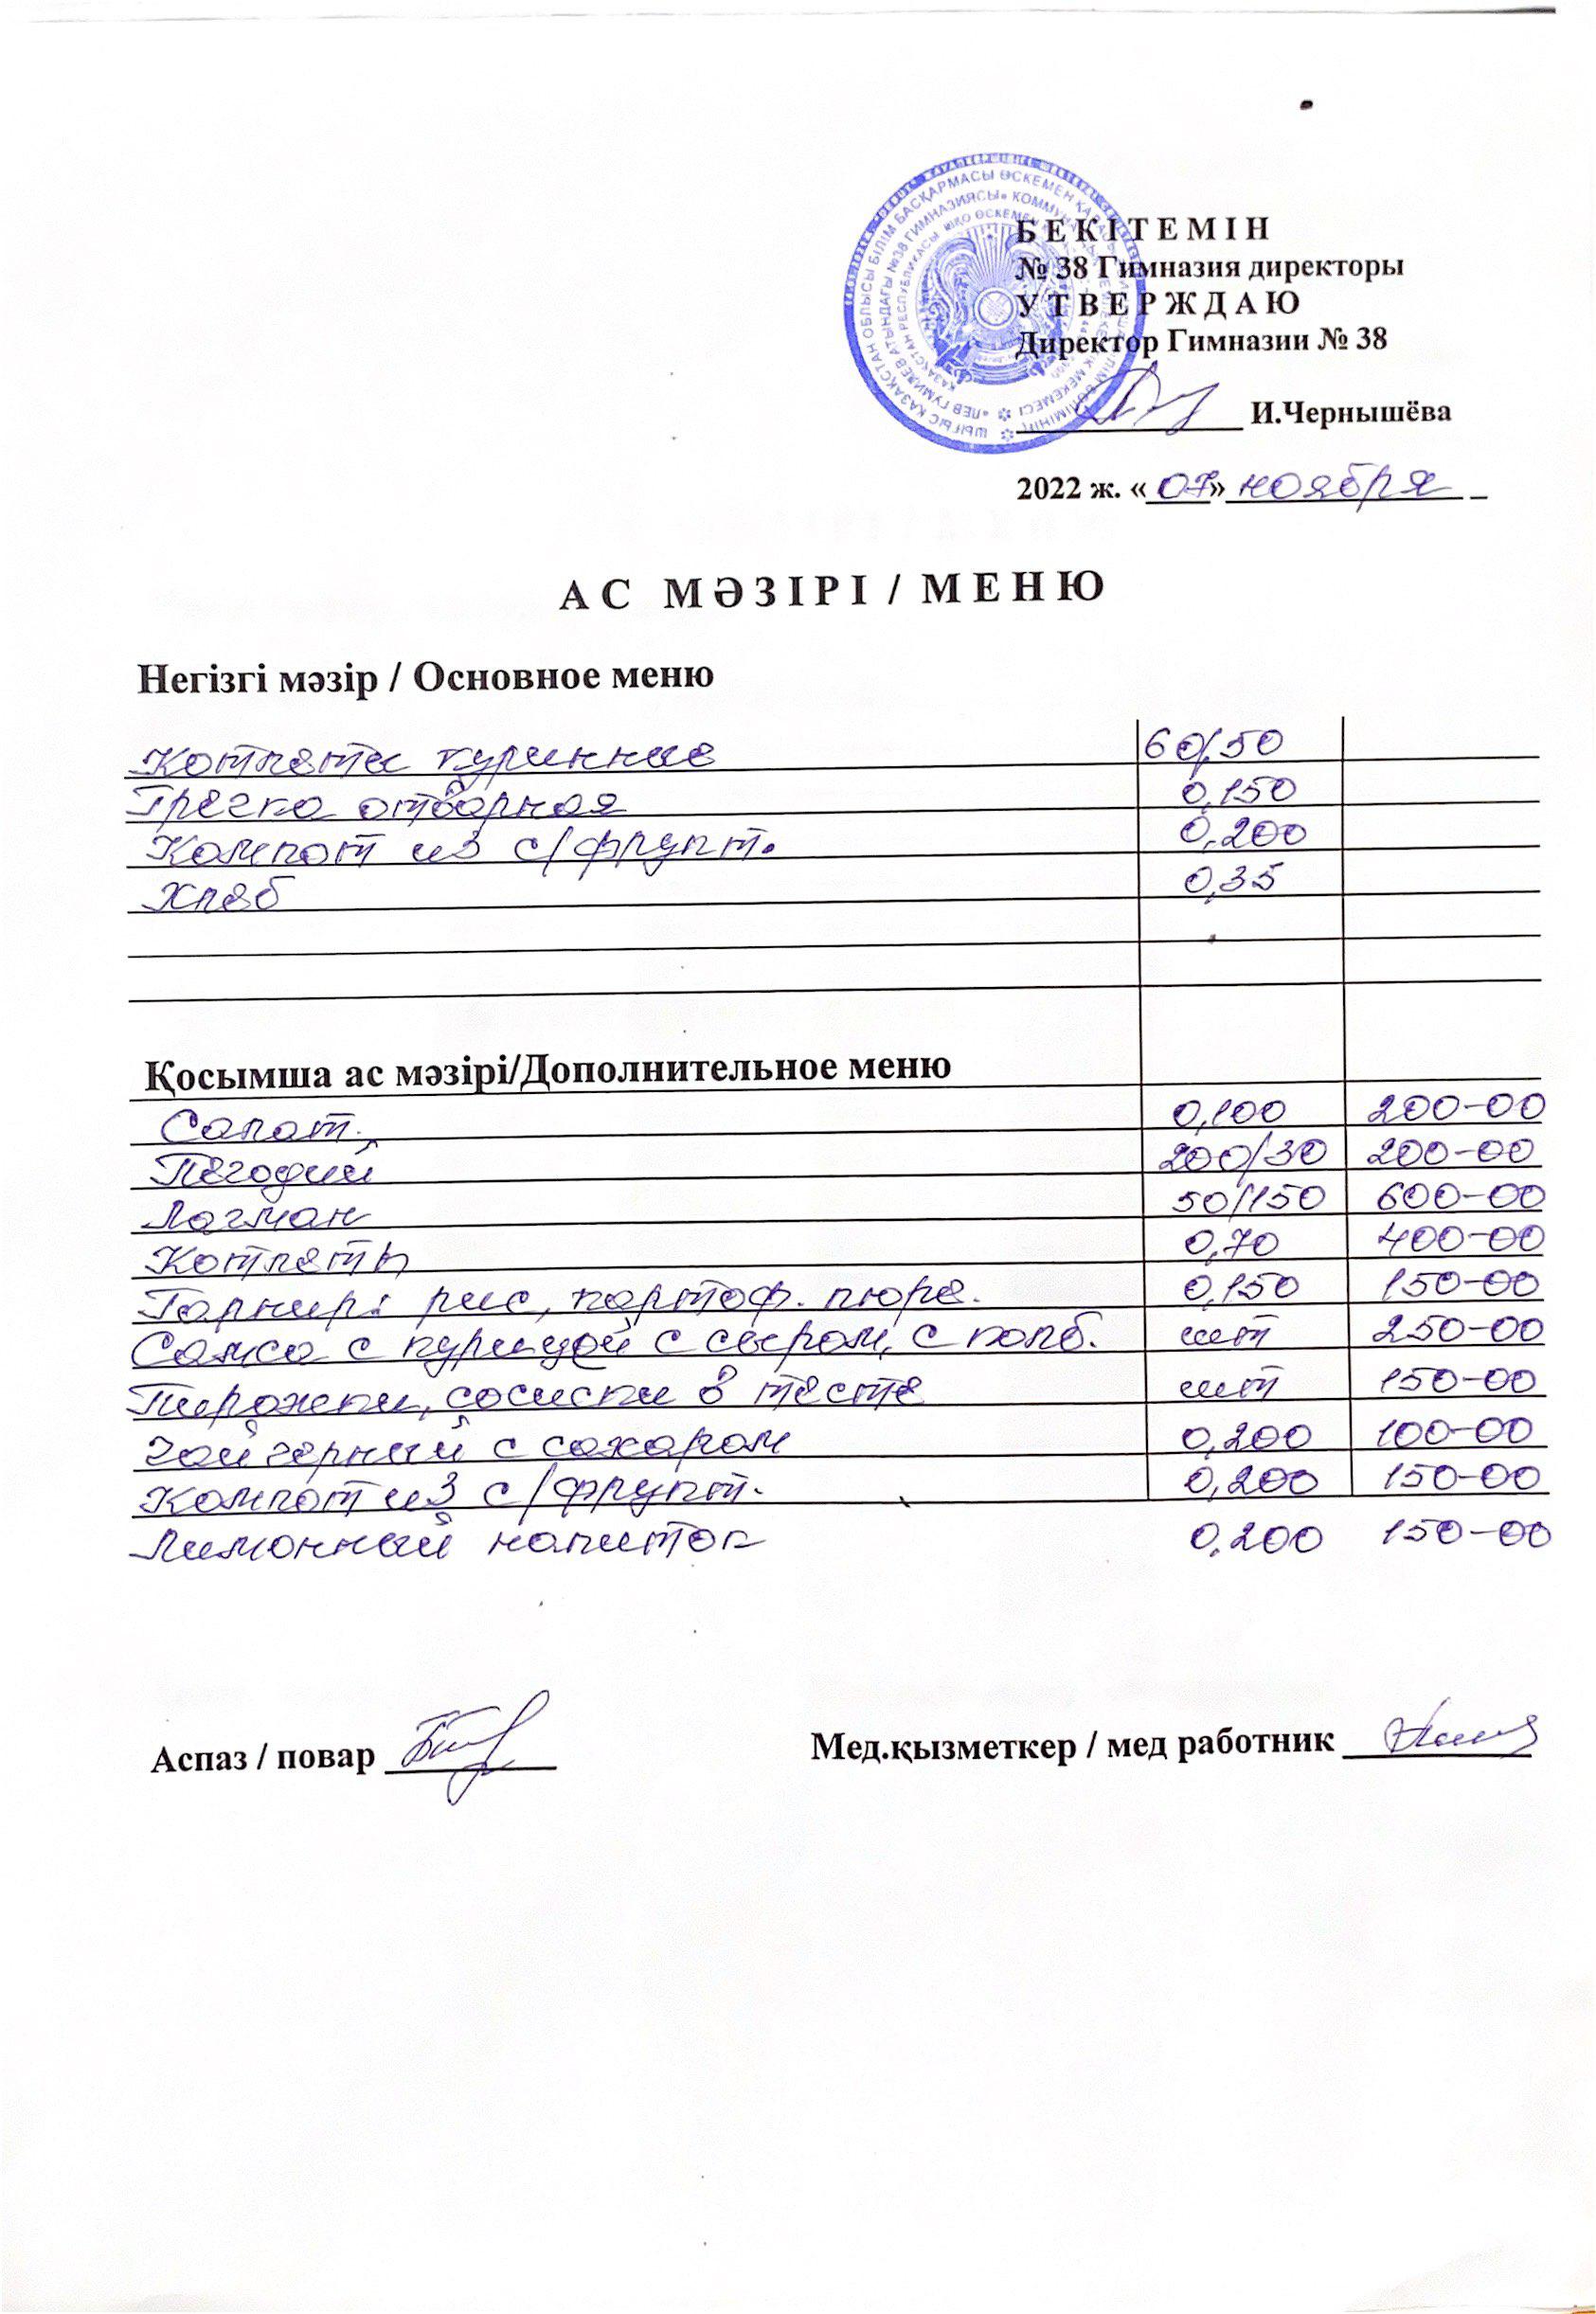 БЕКІТЕМІН
№ 38 Гимназия директоры
УТВЕРЖДАЮ
Директор Гимназии № 38
И.Чернышёва
2022 ж. «07» ноября
АС МӘЗІРІ / МЕНЮ
Негізгі мәзір / Основное меню
Котлеты куринные 60/50
Гречка отварная 0,150
Компот из с/фрукт. 0,200
Хлеб 0,35
Қосымша ас мәзірі/Дополнительное меню
Салат. 0,100 200-00
Пегодий 200/30 200-00
Лагман 50/150 600-00
Котлеты 0,70 400-00
Гарнир: рис, картоф. пюре. 0,150 150-00
Самса с курицей с сыром, с колб. шт 250-00
Пирожки, сосиски в тесте шт 150-00
Чай черный с сахаром 0,200 100-00
Компот из с/фрукт. 0,200 150-00
Лимонный напиток 0,200 150-00
Аспаз / повар Мед.қызметкер / мед работник